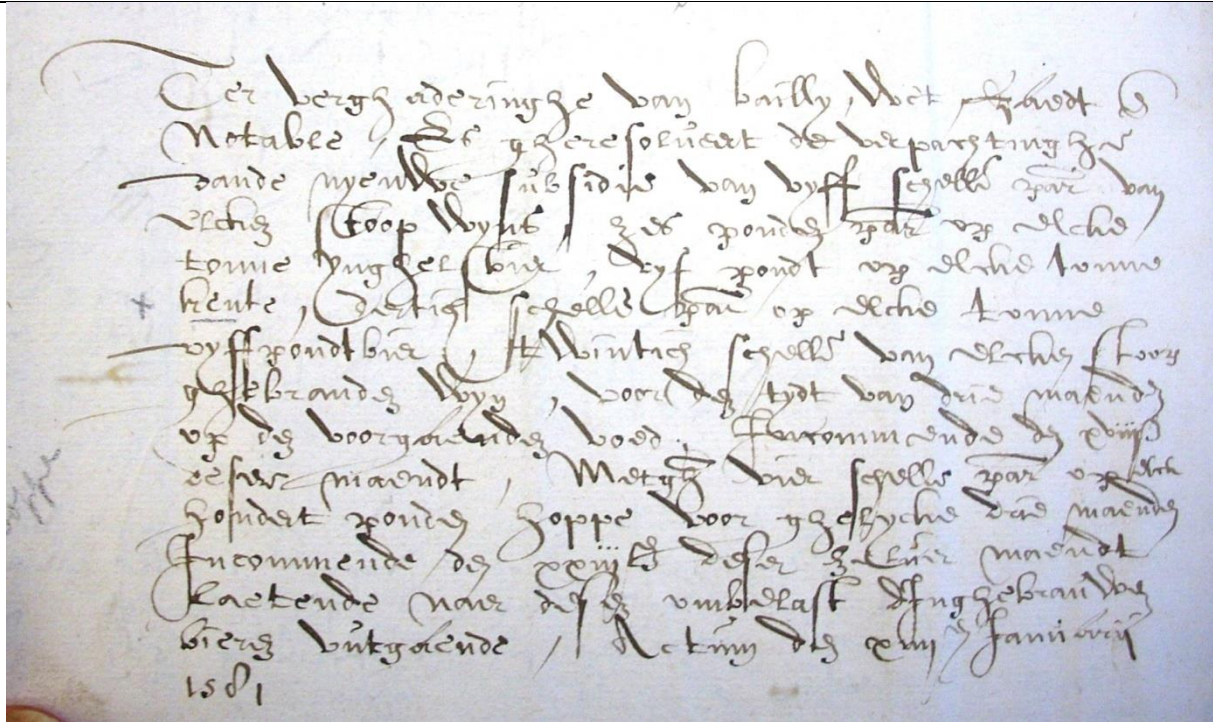 Ter vergh aderinghe van bailly, Wet, Raedt en
Notable, Es gheresolveert de verpachtinghe
vande nyeuwe subsidie van vyff schellen par van
elcken stoop wyns, zes ponden par up elcke
tonne Inghelsbier, vyf pondt up elcke tonne
keute, dertich schellen par up elcke tonne
vyffpondtbier, twintich schellen van elcken stoop
ghebranden wyn, voor den tydt van drie maenden
up den voorgaenden voed. Incommende den xviijen
deser maendt, Metgh vier schelle par up elck
hondert ponden hoppe voor ghelycke drie maenden
Incommende den xxiijen deser zelver maendt
Laetende naer desen ombelast dInghebrauwen
bieren uutgaende, Actum den xiiijen Januarij
1581